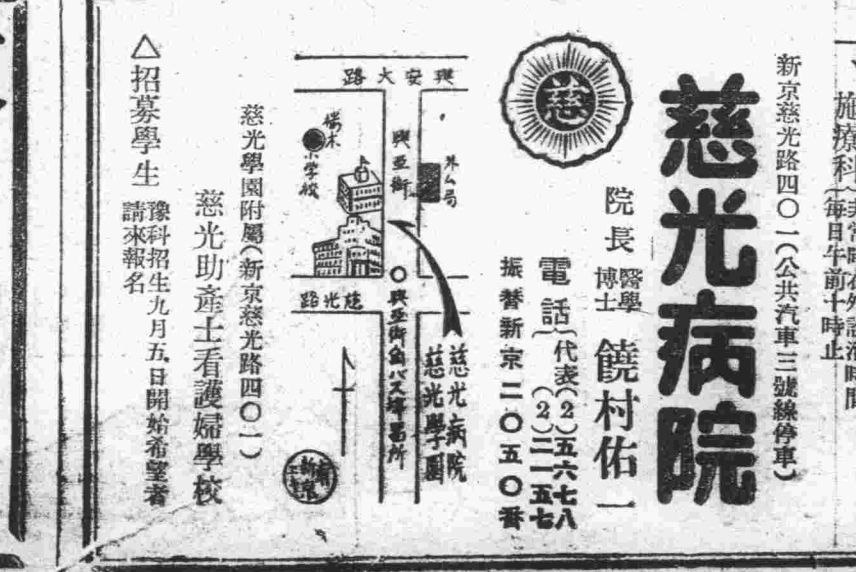 施療科
每日午前十時止
新京慈光路四〇一(公共汽車三號線停車)
慈光病院
慈
院長 醫學博士 饒村佑一
電話 代表(2)五六七八
(2)二一五七
振替新京二〇五〇番
興安大路
興亞街
小学校
慈光路
興亞街角バス停留所
慈光病院
慈光學園
慈光學園附屬(新京慈光路四〇一)
慈光助產士看護婦學校
△招募學生
豫科招生九月五日開始希望者
請來報名